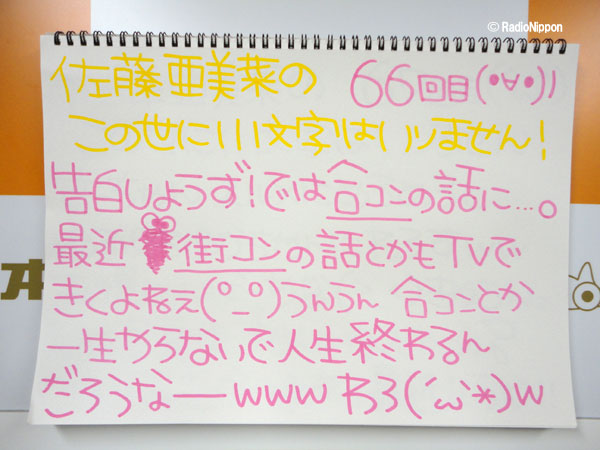 © RadioNippon
佐藤亜美菜の 66回目(•∀•)ノ
この世に小文字はいりません!
告白しようず!では合コンの話に…。
最近 街コンの話とかもTVで
きくよねぇ(°_°)うんうん 合コンとか
一生やらないで人生終わるん
だろうなーwww わろ(´ω`*)w